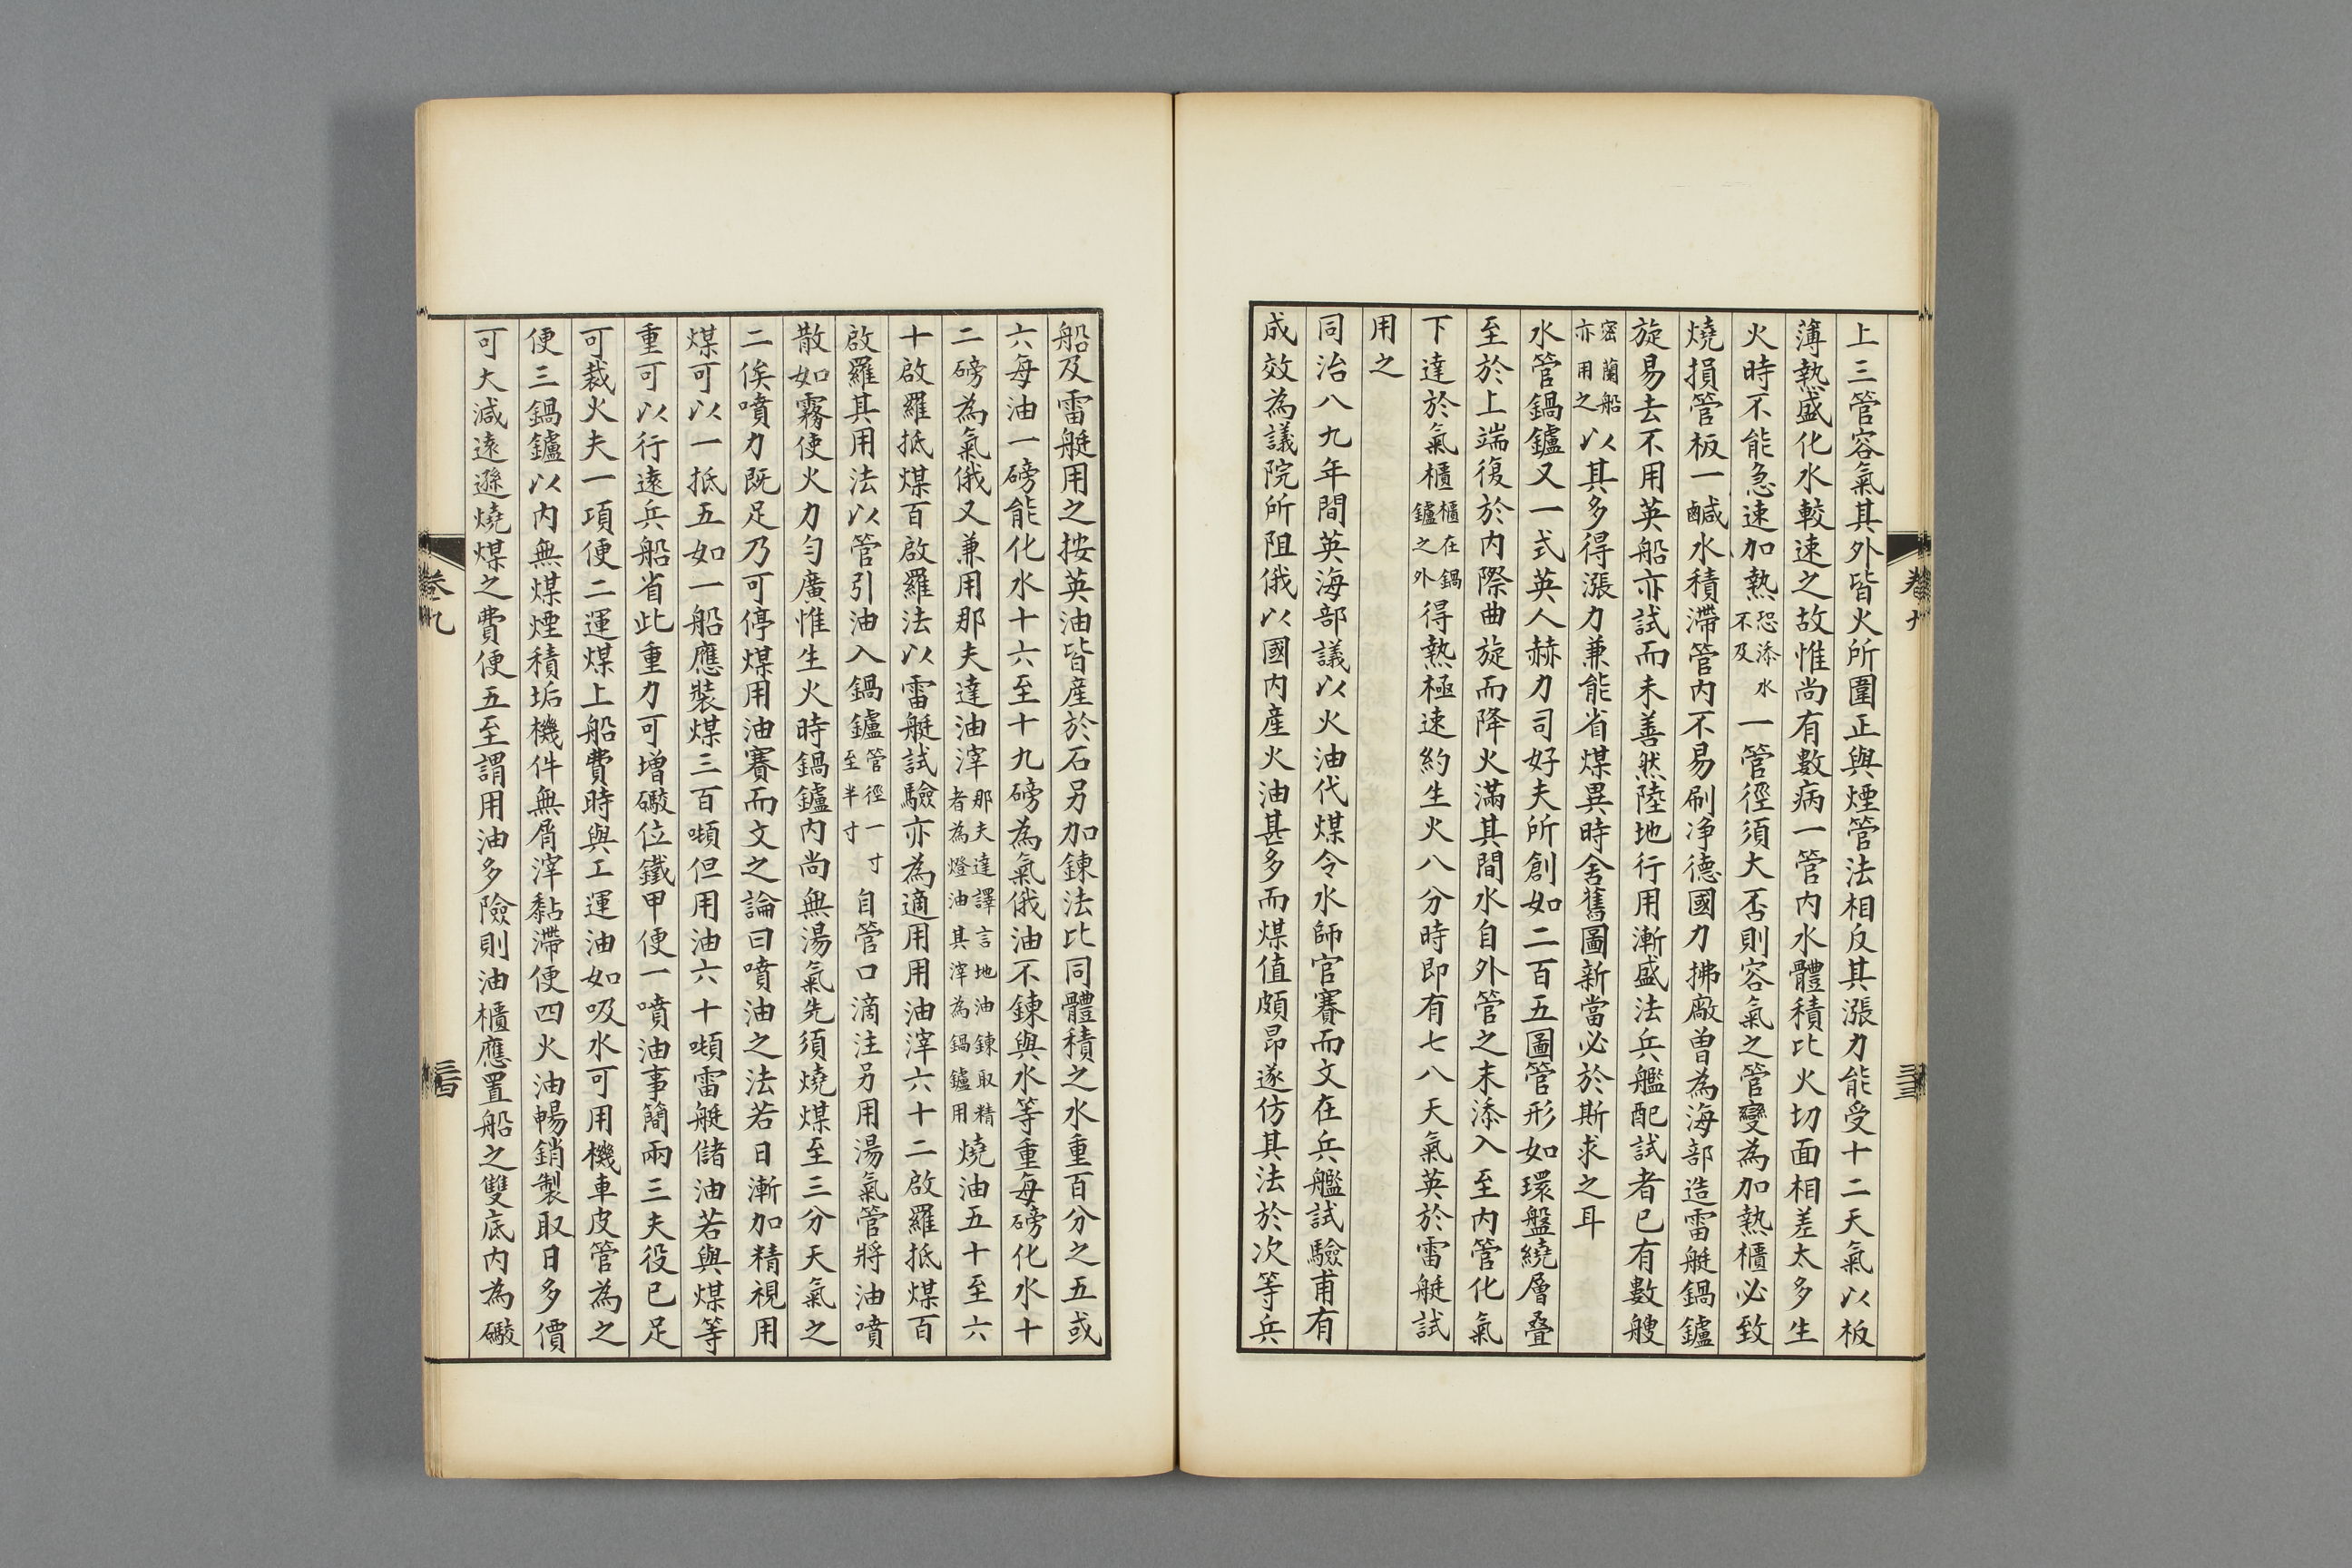 上三管容氣其外皆火所圍正與煙管法相反其漲力能受十二天氣以板
薄熱盛化水較速之故惟尚有數病一管內水體積比火切面相差太多生
火時不能急速加熱恐添水不及一管徑須大否則容氣之管變為加熱櫃必致
燒損管板一鹹水積滯管內不易刷净德國力拂廠曾為海部造雷艇鍋鑪
旋易去不用英船亦試而未善然陸地行用漸盛法兵艦配試者已有數艘
密蘭船亦用之以其多得漲力兼能省煤異時舍舊圖新當必於斯求之耳
水管鍋鑪又一式英人赫力司好夫所創如二百五圖管形如環盤繞層疊
至於上端復於內際曲旋而降火滿其間水自外管之末添入至內管化氣
下達於氣櫃櫃在鍋鑪之外得熱極速約生火八分時即有七八天氣英於雷艇試
用之
同治八九年間英海部議以火油代煤令水師官賽而文在兵艦試驗甫有
成效為議院所阻俄以國內產火油甚多而煤值頗昂遂仿其法於次等兵
卷九
三十三
船及雷艇用之按英油皆產於石另加鍊法比同體積之水重百分之五或
六每油一磅能化水十六至十九磅為氣俄油不鍊與水等重每磅化水十
二磅為氣俄又兼用那夫達油滓那夫達譯言地油鍊取精者為燈油其滓為鍋鑪用燒油五十至六
十啟羅抵煤百啟羅法以雷艇試驗亦為適用用油滓六十二啟羅抵煤百
啟羅其用法以管引油入鍋鑪管徑一寸至半寸自管口滴注另用湯氣管將油噴
散如霧使火力勻廣惟生火時鍋鑪內尚無湯氣先須燒煤至三分天氣之
二俟噴力既足乃可停煤用油賽而文之論曰噴油之法若日漸加精視用
煤可以一抵五如一船應裝煤三百噸但用油六十噸雷艇儲油若與煤等
重可以行遠兵船省此重力可增礮位鐵甲便一噴油事簡兩三夫役已足
可裁火夫一項便二運煤上船費時與工運油如吸水可用機車皮管為之
便三鍋鑪以內無煤煙積垢機件無屑滓黏滯便四火油暢銷製取日多價
可大減遠遜燒煤之費便五至謂用油多險則油櫃應置船之雙底內為礮
卷九
三十四